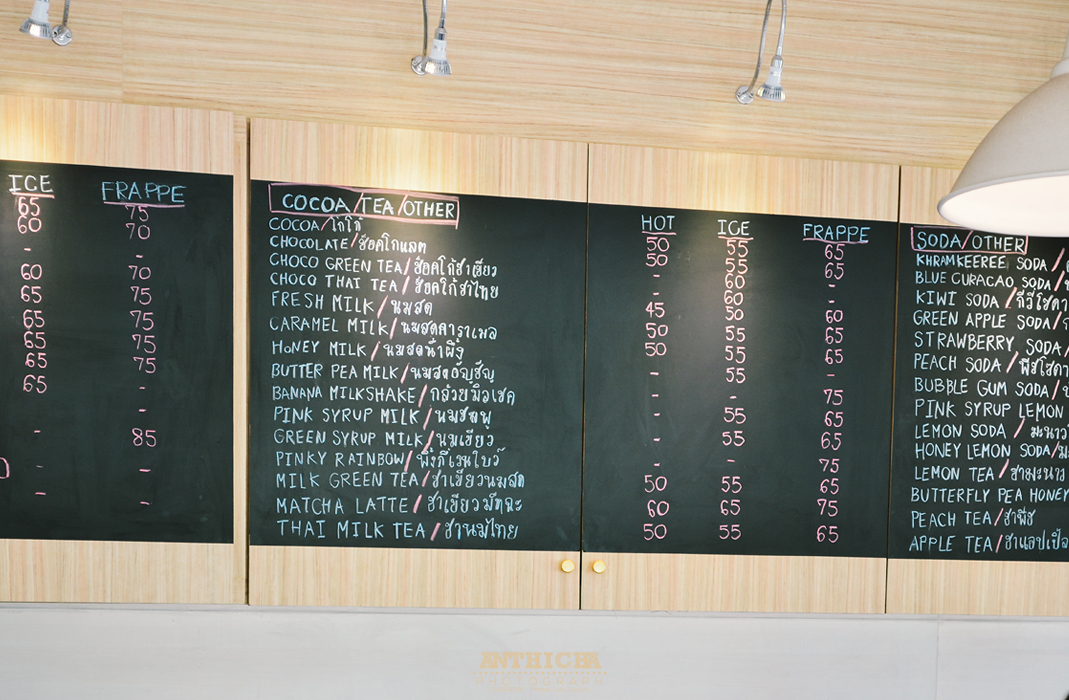 ICE FRAPPE
65 75
60 70
- -
60 70
65 75
65 75
65 75
65 75
65 -
-
- 85
- -
- -
COCOA/TEA/OTHER
COCOA/โกโก้
CHOCOLATE/ช็อคโกแลต
CHOCO GREEN TEA/ช็อคโก้ชาเขียว
CHOCO THAI TEA/ช็อคโก้ชาไทย
FRESH MILK/นมสด
CARAMEL MILK/นมสดคาราเมล
HONEY MILK/นมสดน้ำผึ้ง
BUTTER PEA MILK/นมสดอัญชัญ
BANANA MILKSHAKE/กล้วยมิลเชค
PINK SYRUP MILK/นมชมพู
GREEN SYRUP MILK/นมเขียว
PINKY RAINBOW/พิ้งกี้เรนโบว์
MILK GREEN TEA/ชาเขียวนมสด
MATCHA LATTE/ชาเขียวมัทฉะ
THAI MILK TEA/ชานมไทย
HOT ICE FRAPPE
50 55 65
50 55 65
- 60 -
- 60 -
45 50 60
50 55 65
50 55 65
- 55 -
- - 75
- 55 65
- 55 65
- - 75
50 55 65
60 65 75
50 55 65
SODA/OTHER
KHRAMKEEREE SODA/
BLUE CURACAO SODA/
KIWI SODA/กีวี่โซดา
GREEN APPLE SODA/
STRAWBERRY SODA/
PEACH SODA/พีชโซดา
BUBBLE GUM SODA/
PINK SYRUP LEMON
LEMON SODA/มะนาว
HONEY LEMON SODA/
LEMON TEA/ชามะนาว
BUTTERFLY PEA HONEY
PEACH TEA/ชาพีช
APPLE TEA/ชาแอปเปิ้ล
ANTHICHA
PHOTOGRAPH